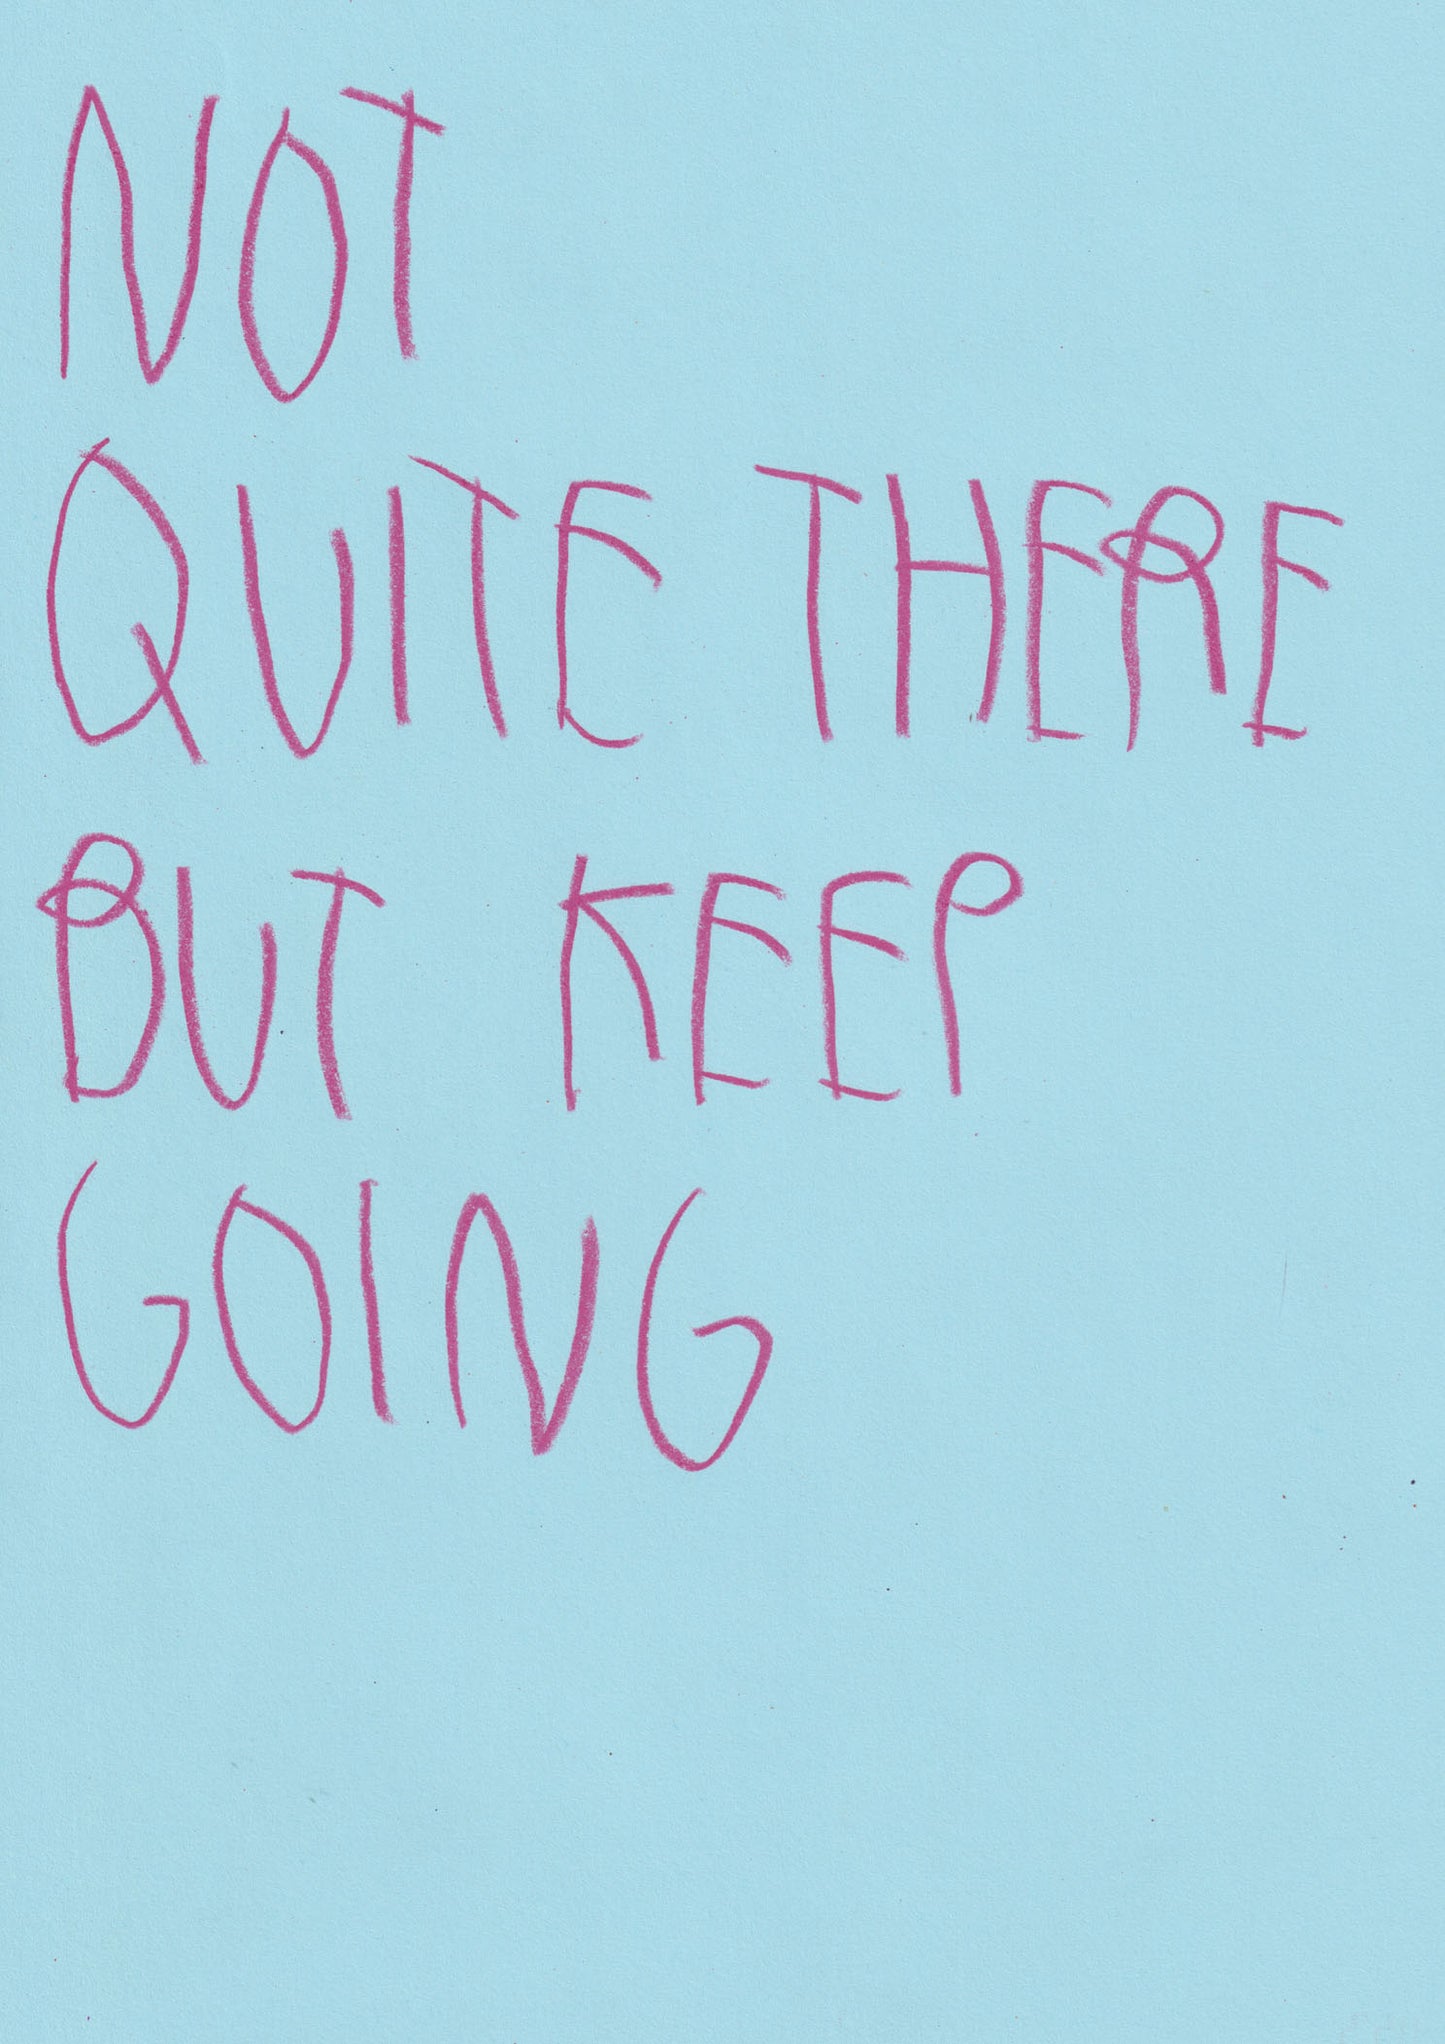 NOT
QUITE THERE
BUT KEEP
GOING